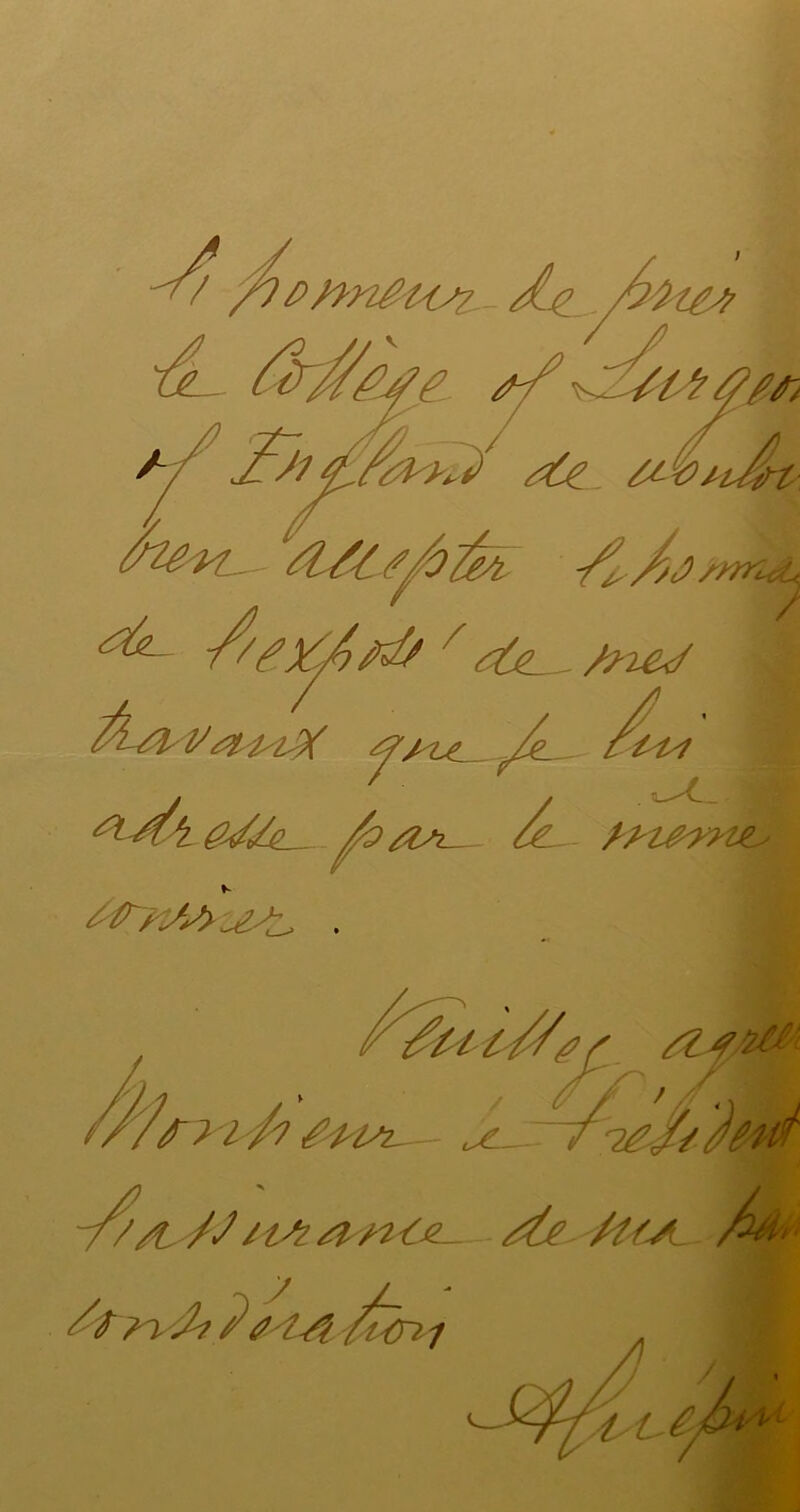 l'honneur de prier
le College of Surgeon
of England de vouloir
bien accepter l'hommage
de l'exposé de mes
travaux que je lui
adresse par le même
courrier.
Veuillez agréer
Monsieur le Président
l'assurance de ma
considération